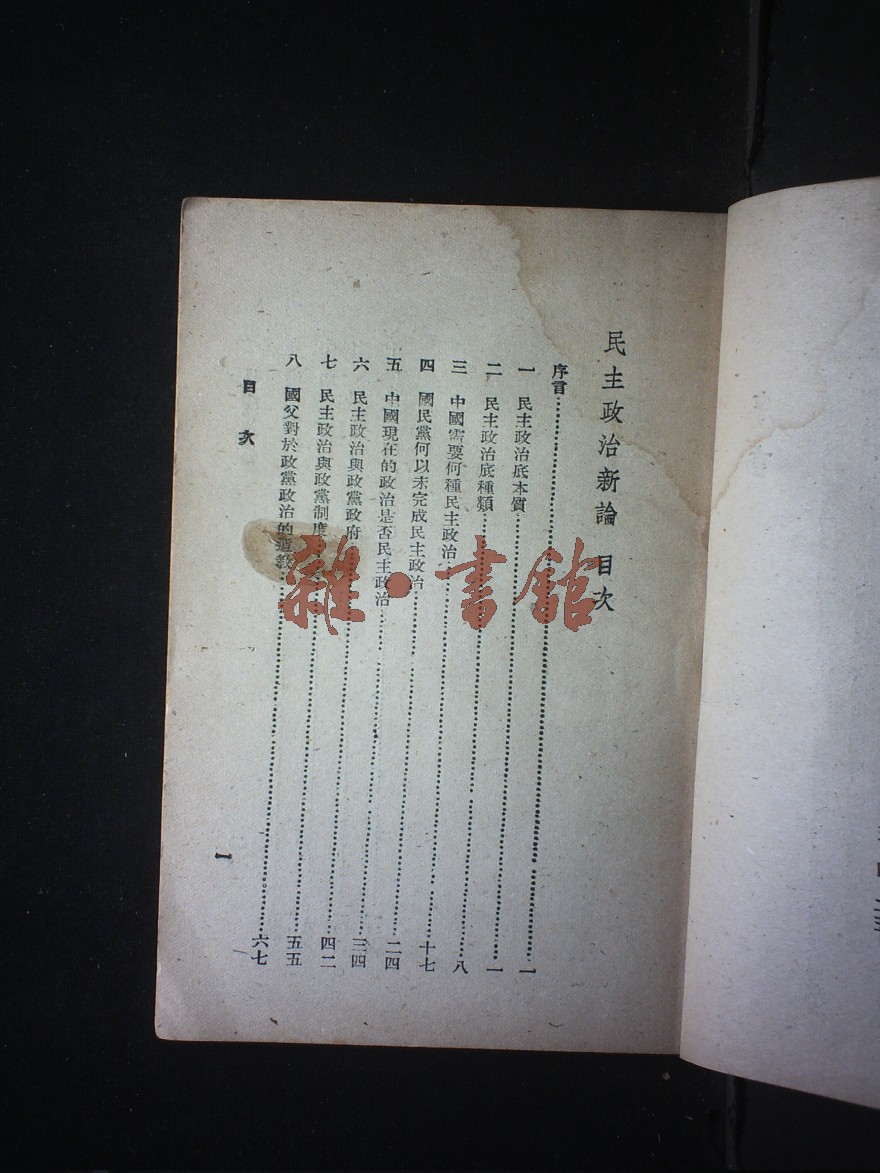 民主政治新論 目次
序言……一
一 民主政治底本質……一
二 民主政治底種類……八
三 中國需要何種民主政治……十七
四 國民黨何以未完成民主政治……二四
五 中國現在的政治是否民主政治……三四
六 民主政治與政黨政府……四二
七 民主政治與政黨制度……五五
八 國父對於政黨政治的遺教……六七
目次
一
雜·書館